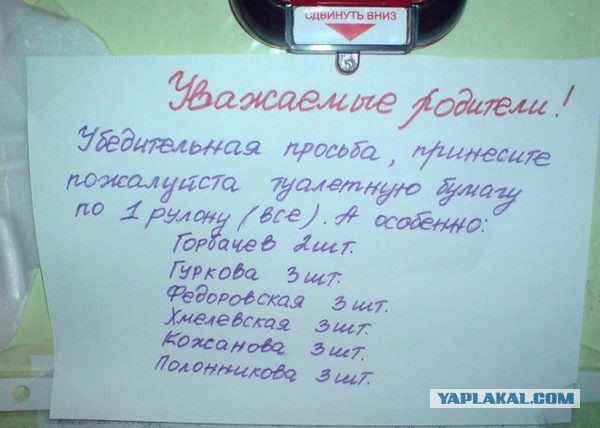 СДВИНУТЬ ВНИЗ
Уважаемые родители!
Убедительная просьба, принесите
пожалуйста туалетную бумагу
по 1 рулону (все). А особенно:
Горбачев 2 шт.
Гуркова 3 шт.
Федоровская 3 шт.
Хмелевская 3 шт.
Кожанова 3 шт.
Полонникова 3 шт.
YAPLAKAL.COM